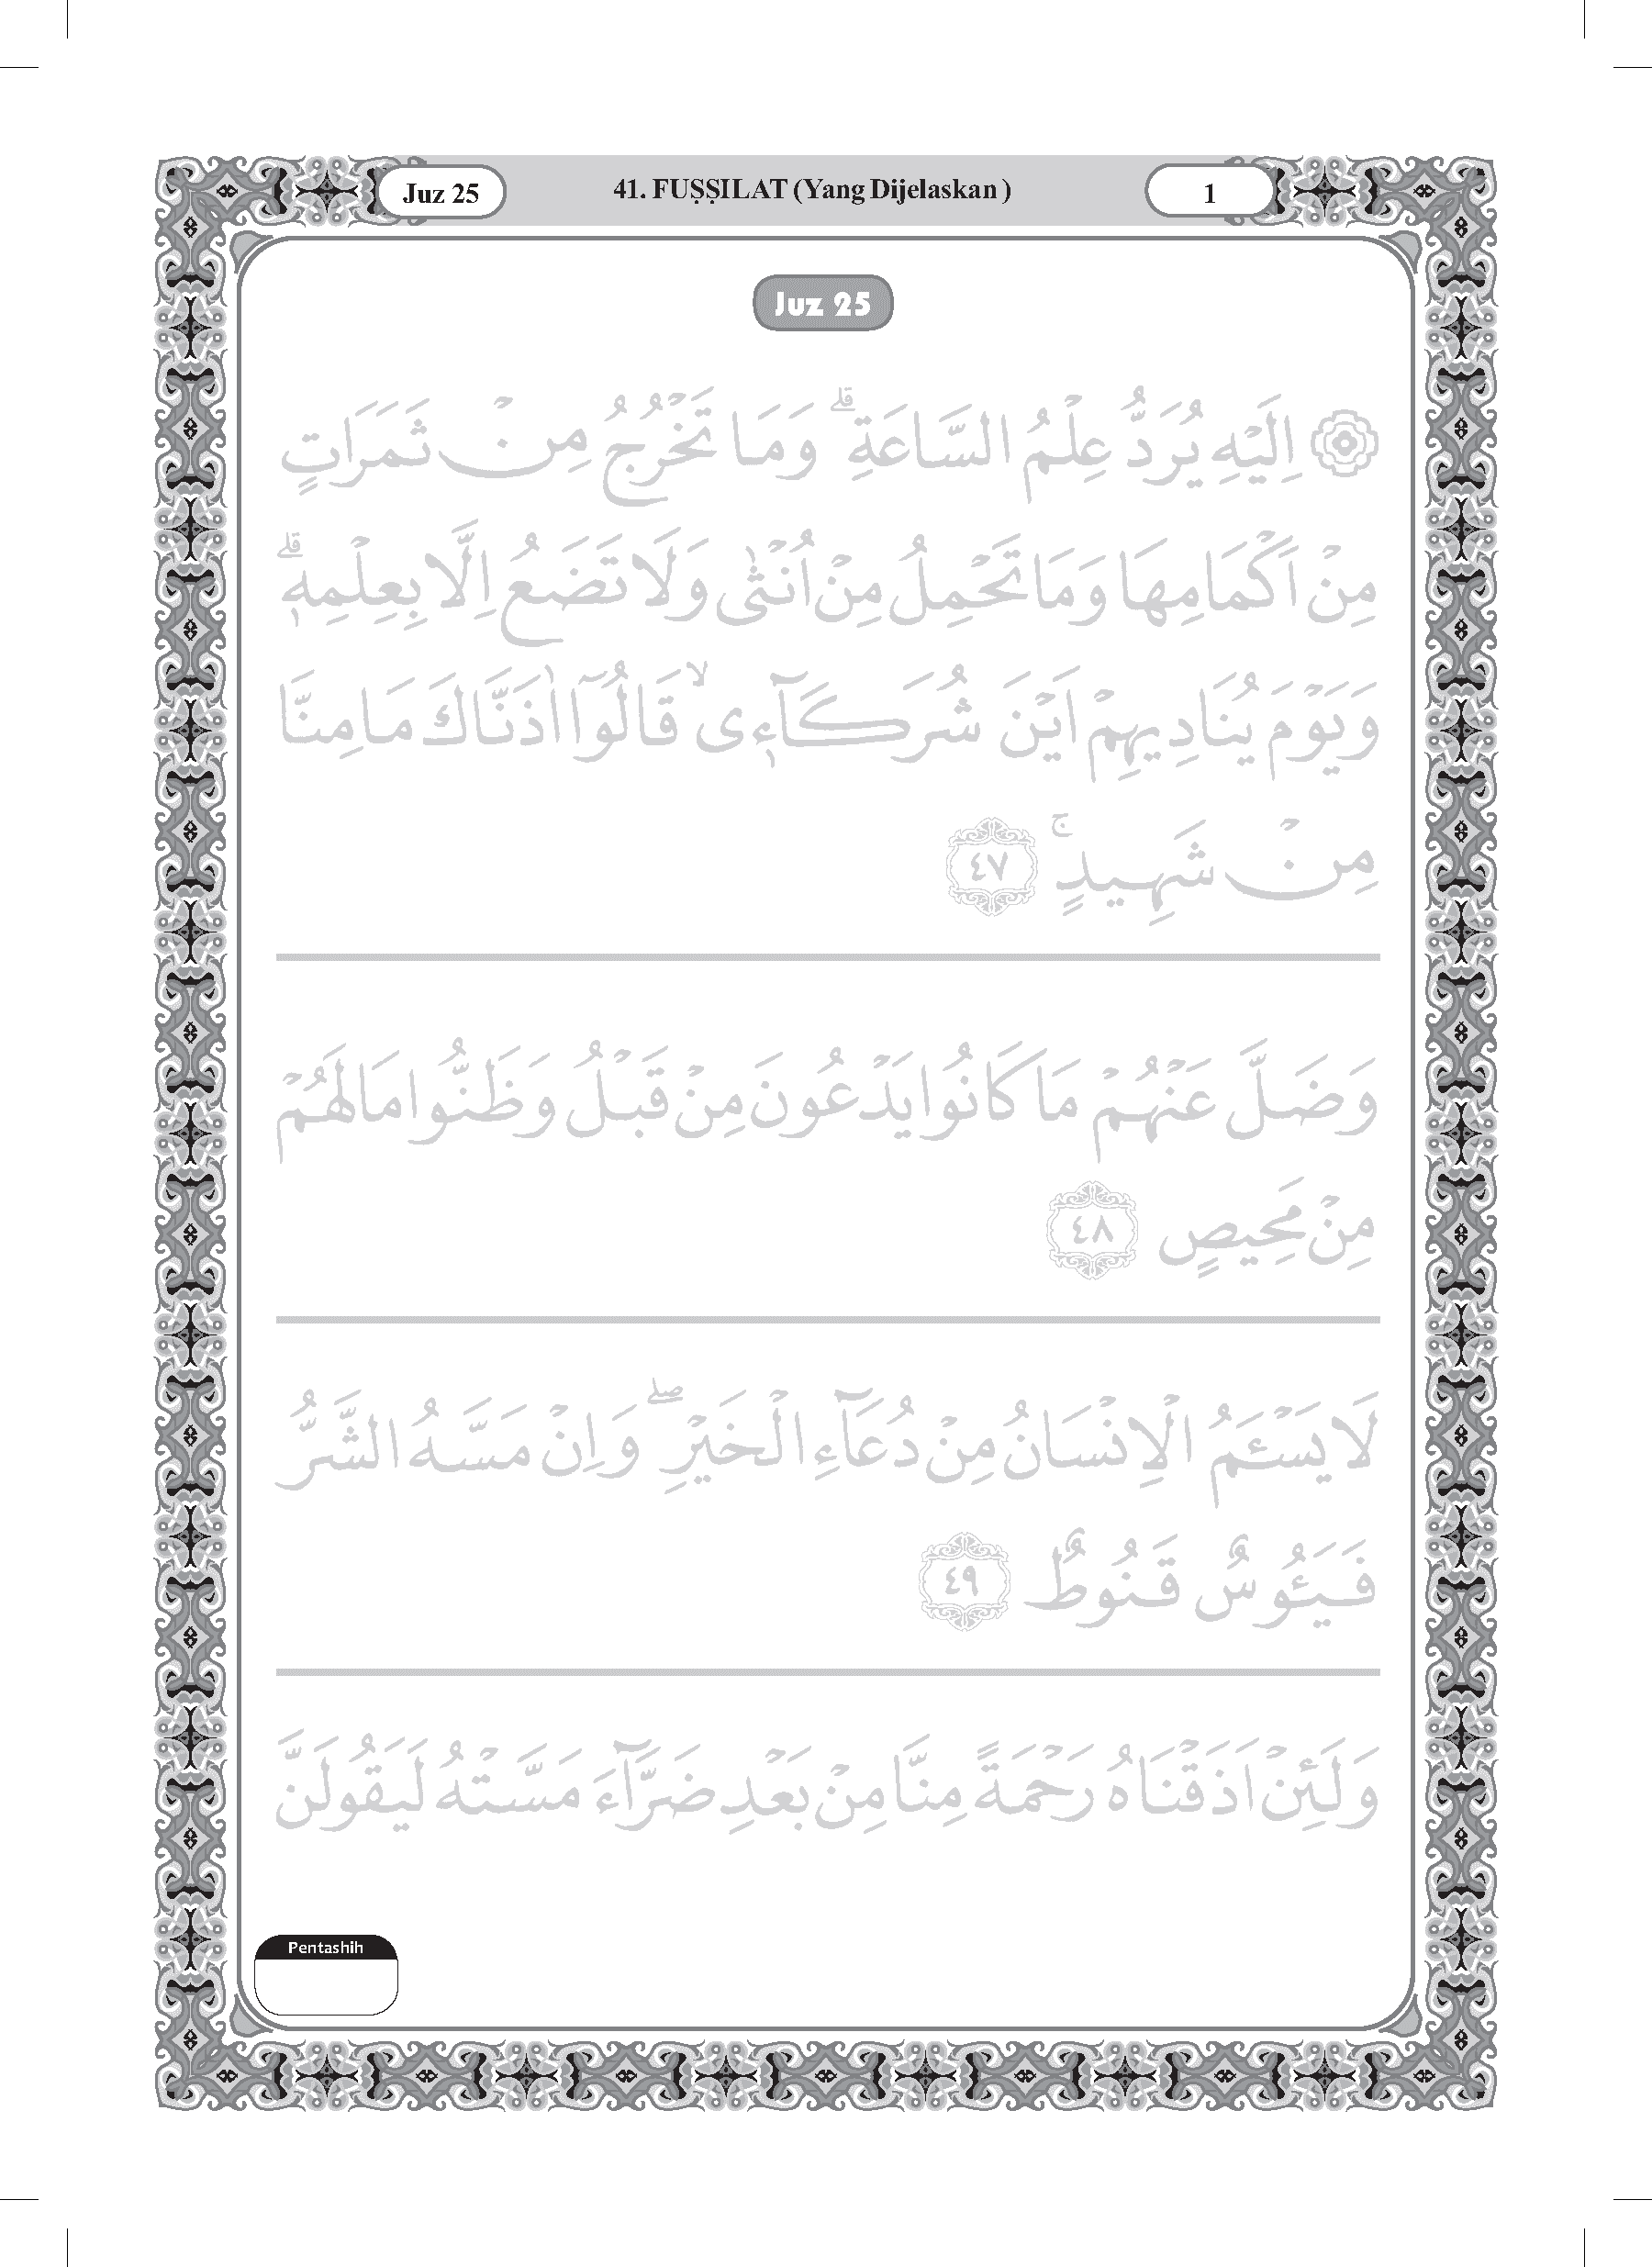 Juz 25
41. FUṢṢILAT (Yang Dijelaskan )
1
Juz 25
۞ اِلَيْهِ يُرَدُّ عِلْمُ السَّاعَةِ ۗ وَمَا تَخْرُجُ مِنْ ثَمَرَاتٍ
مِنْ اَكْمَامِهَا وَمَا تَحْمِلُ مِنْ اُنْثٰى وَلَا تَضَعُ اِلَّا بِعِلْمِهٖ ۗ
وَيَوْمَ يُنَادِيهِمْ اَيْنَ شُرَكَآءِٖى ۙ قَالُوْٓا اٰذَنَّاكَ مَامِنَّا
مِنْ شَهِيدٍ ۚ ٤٧
وَضَلَّ عَنْهُمْ مَا كَانُوا يَدْعُونَ مِنْ قَبْلُ وَظَنُّوا مَا لَهُمْ
مِنْ مَحِيصٍ ٤٨
لَا يَسْـَٔمُ الْاِنْسَانُ مِنْ دُعَآءِ الْخَيْرِ ۖ وَاِنْ مَسَّهُ الشَّرُّ
فَيَـُٔوسٌ قَنُوطٌ ٤٩
وَلَئِنْ اَذَقْنَاهُ رَحْمَةً مِنَّا مِنْ بَعْدِ ضَرَّآءَ مَسَّتْهُ لَيَقُولَنَّ
Pentashih